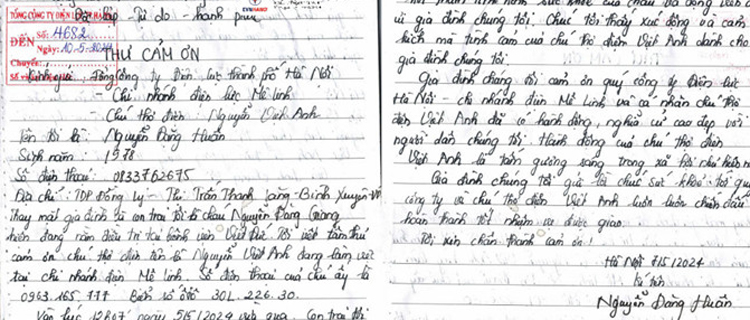 Độc lập - Tự do - Hạnh phúc
EVNHANOI
TỔNG CÔNG TY ĐIỆN LỰC
ĐẾN Số: 4682
Ngày: 10-5-2024
Chuyển:
THƯ CẢM ƠN
Kính gửi: Tổng công ty Điện lực thành phố Hà Nội
- Chi nhánh điện lực Mê Linh
- Chú thợ điện: Nguyễn Việt Anh
Tên tôi là: Nguyễn Đăng Huấn
Sinh năm: 1978
Số điện thoại: 0833762675
Địa chỉ: TDP Đồng Lý - Thị Trấn Thanh Lãng - Bình Xuyên - VP
Thay mặt gia đình là con trai tôi là cháu Nguyễn Đăng Giang
hiện đang nằm điều trị tại bệnh viện Việt Đức. Tôi viết tâm thư
cảm ơn chú thợ điện tên là Nguyễn Việt Anh đang làm việc
tại chi nhánh điện Mê linh. Số điện thoại của chú ấy là
0963.165.777 Biển số ôtô 30L.226.30.
Vào lúc 12h07 ngày 5/5/2024 vừa qua. Con trai tôi
gia đình chúng tôi. Chúc tôi thấy xúc động và cảm
kích mà tình cảm của chú thợ điện Việt Anh dành cho
gia đình chúng tôi.
Gia đình chúng tôi cảm ơn quý công ty Điện lực
Hà Nội - chi nhánh điện Mê Linh và cá nhân chú thợ
điện Việt Anh đã có hành động, nghĩa cử cao đẹp với
người dân chúng tôi. Hành động của chú thợ điện
Việt Anh là tấm gương sáng trong xã hội như hiện nay
Gia đình chúng tôi gửi lời chúc sức khỏe tới quý
công ty và chú thợ điện Việt Anh luôn luôn chiến đấu
hoàn thành tốt nhiệm vụ được giao.
Tôi xin chân thành cảm ơn!
Hà Nội 7/5/2024
ký tên
Nguyễn Đăng Huấn